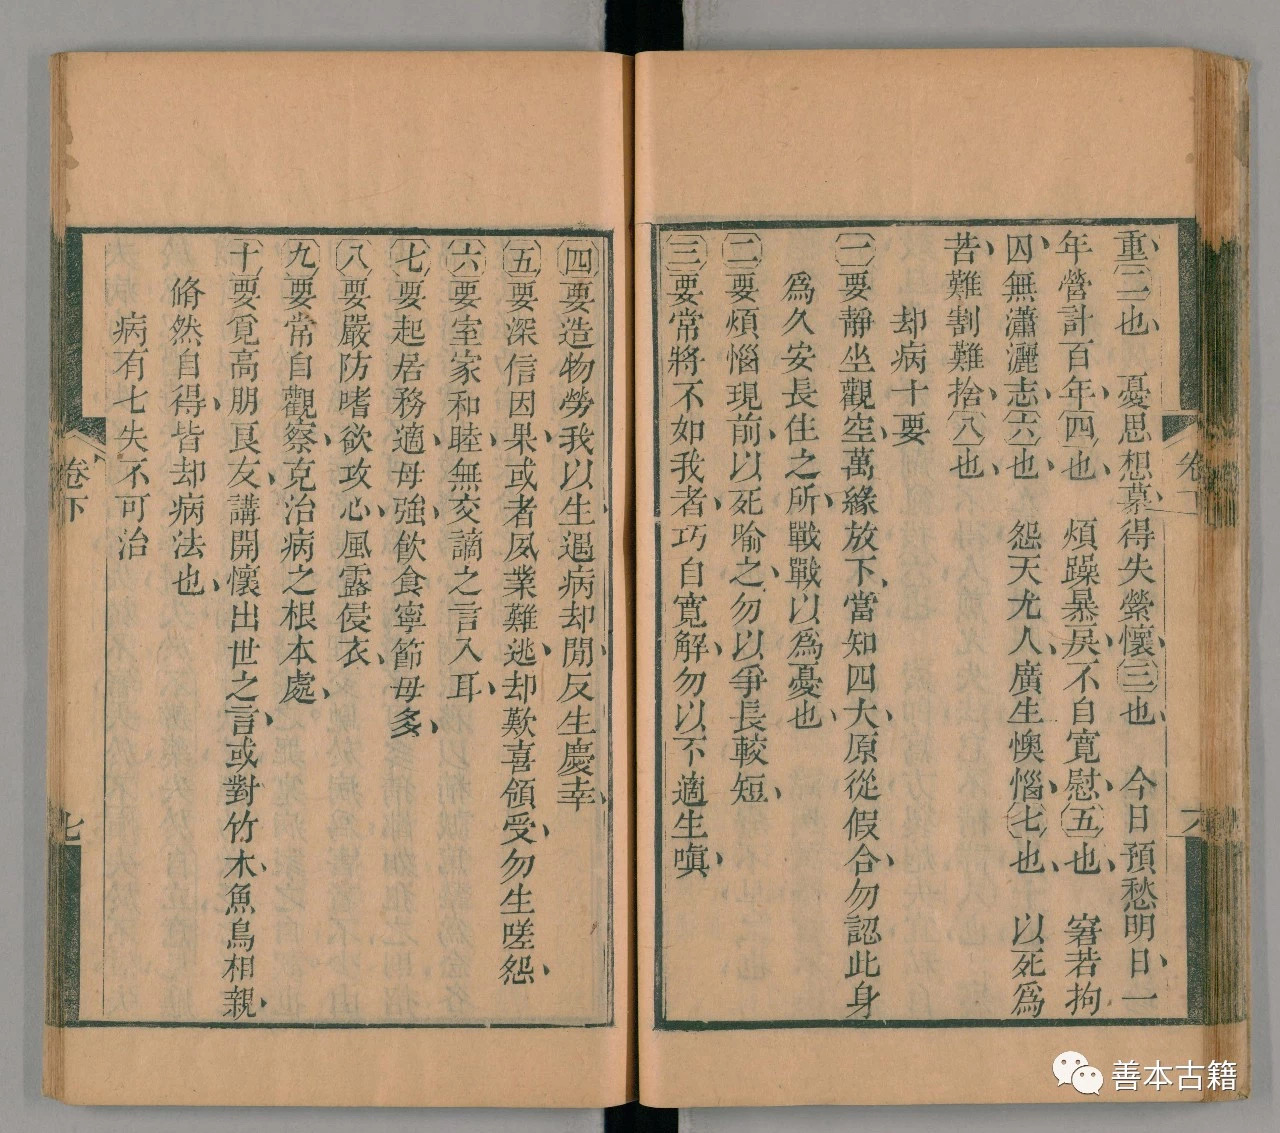 重二也　憂思想慕得失縈懷三也　今日預愁明日一
年營計百年四也　煩躁暴戾不自寬慰五也　窘若拘
囚無瀟灑志六也　怨天尤人廣生懊惱七也　以死爲
苦難割難捨八也
却病十要
一要靜坐觀空萬緣放下當知四大原從假合勿認此身
爲久安長住之所戰戰以爲憂也
二要煩惱現前以死喻之勿以爭長較短
三要常將不如我者巧自寬解勿以不適生嗔
卷下
六
四要造物勞我以生遇病却閒反生慶幸
五要深信因果或者夙業難逃却歎喜領受勿生嗟怨
六要室家和睦無交謫之言入耳
七要起居務適毋強飲食寧節毋多
八要嚴防嗜欲攻心風露侵衣
九要常自觀察克治病之根本處
十要覓高朋良友講開懷出世之言或對竹木魚鳥相親
翛然自得皆却病法也
病有七失不可治
卷下
七
善本古籍